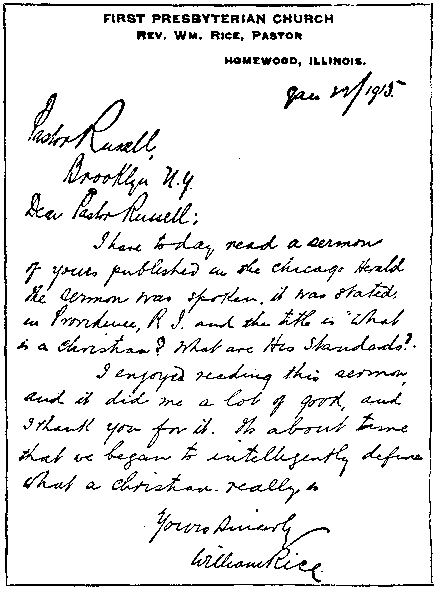 FIRST PRESBYTERIAN CHURCH
REV. WM. RICE, PASTOR
HOMEWOOD, ILLINOIS.
Jan 22/1915.
Pastor Russell,
Brooklyn N.Y.
Dear Pastor Russell:
I have today read a sermon
of yours published in the Chicago Herald
the sermon was spoken, it was stated,
in Providence, R I. and the title is "What
is a Christian? What are His Standards?"
I enjoyed reading this sermon,
and it did me a lot of good, and
I thank you for it. Its about time
that we began to intelligently define
what a Christian really is
Yours Sincerly
William Rice.